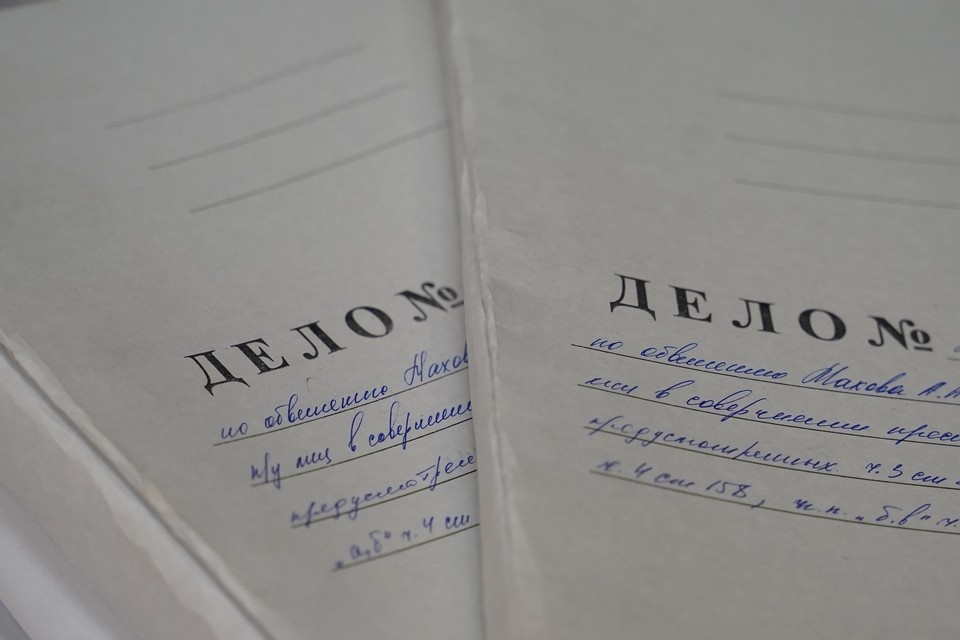 ДЕЛО №
по обвинению Махов
и др лиц в совершении
предусмотрен
„а,б" ч. 4 ст
ДЕЛО №
по обвинению Махова А.А
лиц в совершении прес
предусмотренных ч. 3 ст
ч. 4 ст 158, п.п. „б,в" ч.